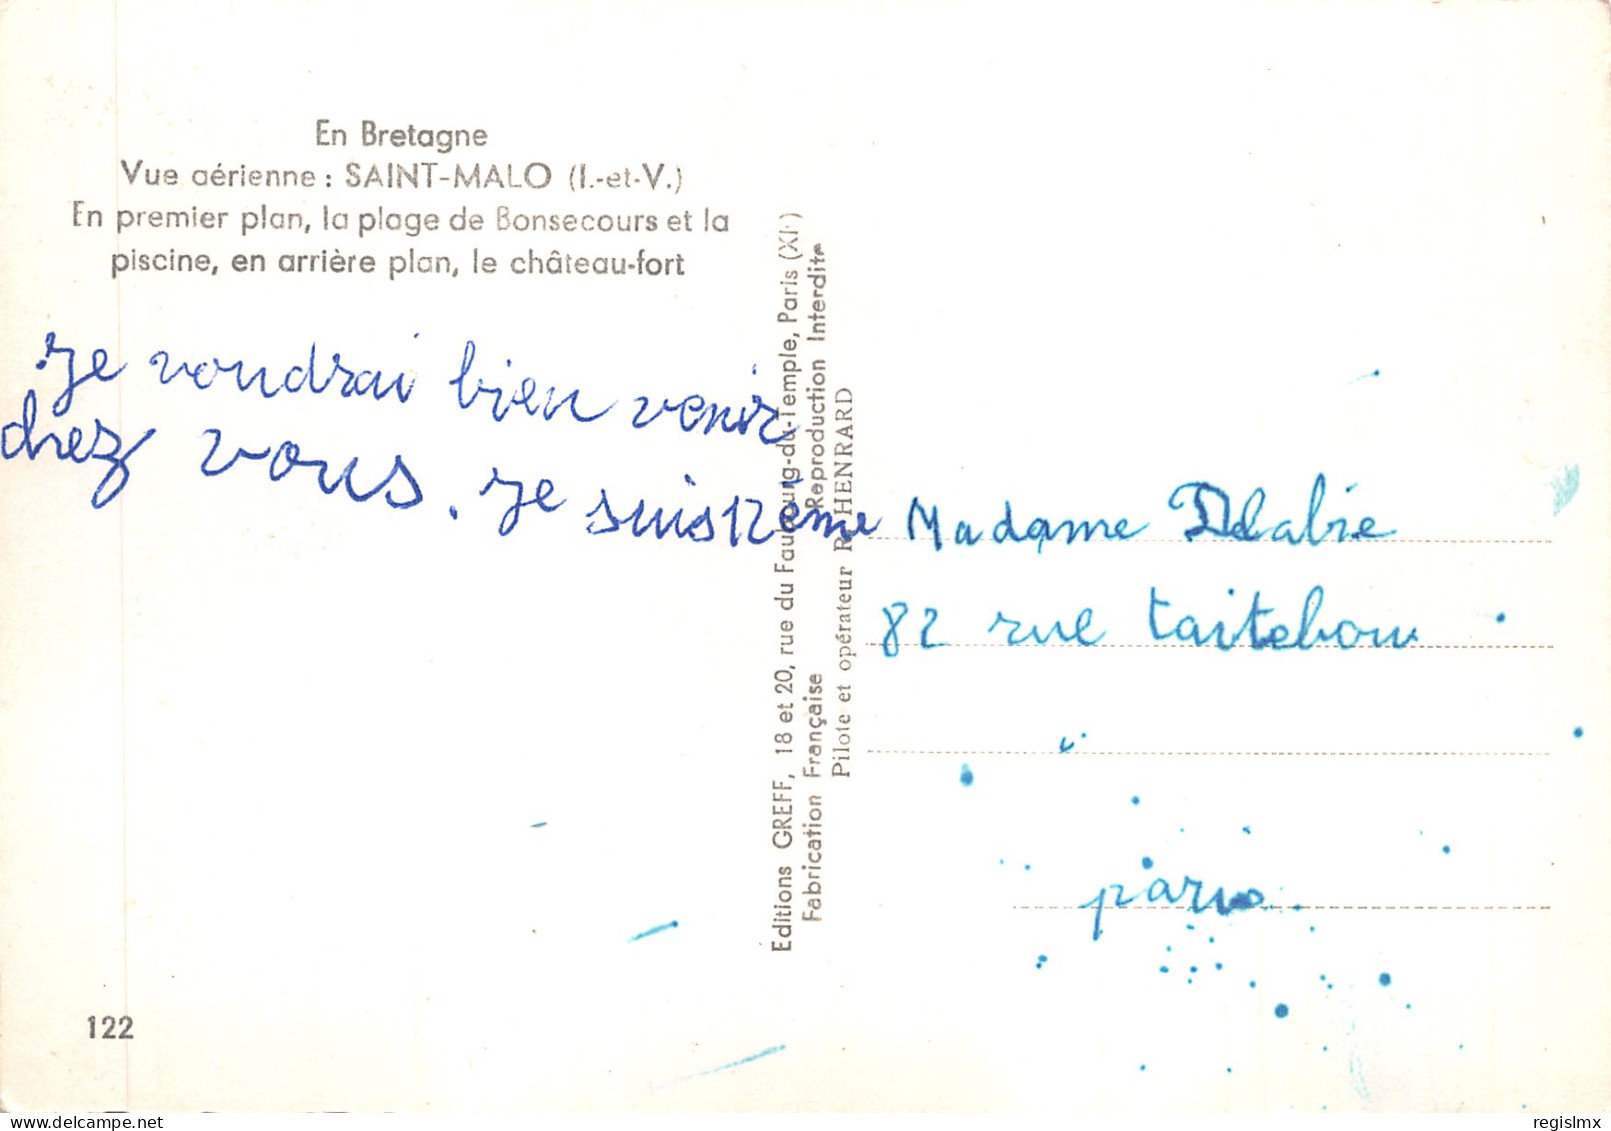 En Bretagne
Vue aérienne : SAINT-MALO (I.-et-V.)
En premier plan, la plage de Bonsecours et la
piscine, en arrière plan, le château-fort
Je voudrai bien venir
chez vous. Je suis 12ème
Editions GREFF, 18 et 20, rue du Faubourg-du-Temple, Paris (XIe)
Fabrication Française Reproduction Interdite
Pilote et opérateur R. HENRARD
Madame Delabie
82 rue taitebou
paris
122
delcampe.net
regislmx